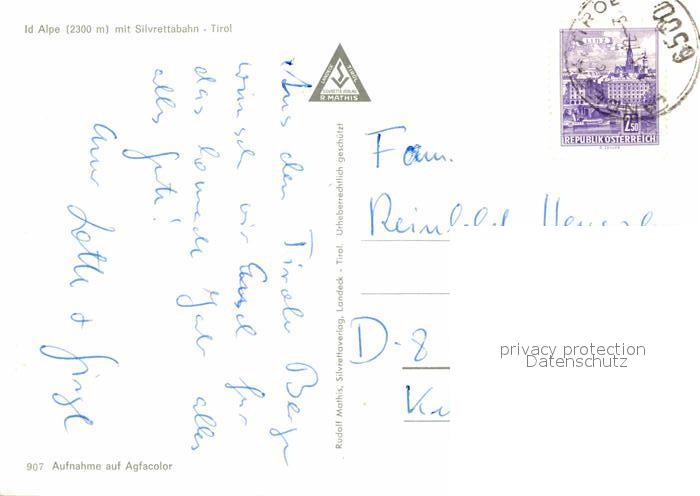 Id Alpe (2300 m) mit Silvrettabahn - Tirol
Aus den Tiroler Bergen
wünschen wir Euch für
das komende Jahr alles
alles gute!
Lotte +
LANDECK TIROL
SILVRETTA-VERLAG
R. MATHIS
Rudolf Mathis, Silvrettaverlag, Landeck - Tirol. Urheberrechtlich geschützt
LINZ
2.50
REPUBLIK ÖSTERREICH
6500
Fam.
D-8
privacy protection
Datenschutz
907 Aufnahme auf Agfacolor